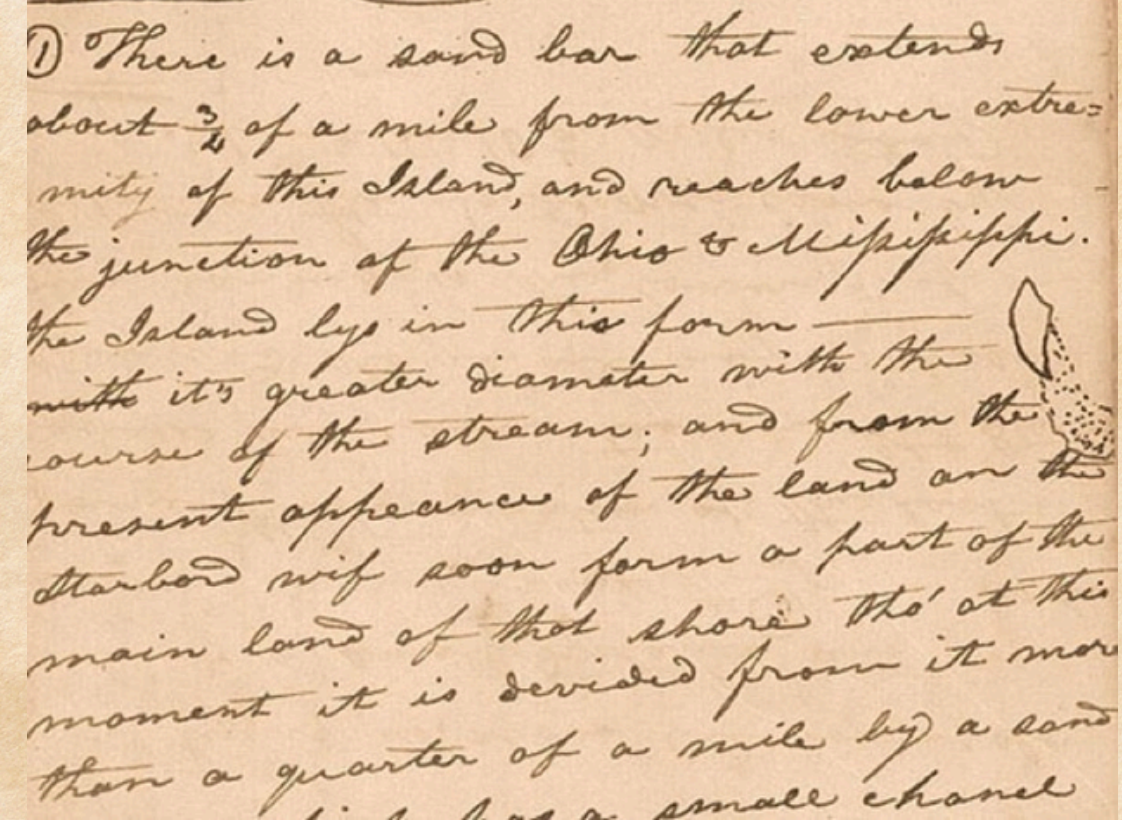 ① There is a sand bar that extends
about 3/4 of a mile from the lower extre=
mity of this Island, and reaches below
the junction of the Ohio & Missisippi.
the Island lys in this form ———
with it's greater diameter with the
course of the stream; and from the
present appeance of the land on the
starbord wif soon form a part of the
main land of that shore tho' at this
moment it is devided from it more
than a quarter of a mile by a sand
has a small chanel